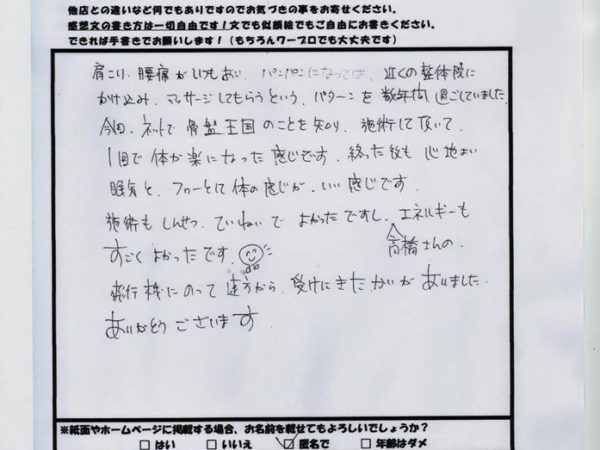 他店との違いなど何でもありですのでお気づきの事をお寄せください。
感想文の書き方は一切自由です！文でも似顔絵でもご自由にお書きください。
できれば手書きでお願いします！（もちろんワープロでも大丈夫です）
肩こり、腰痛がいつもあり、パンパンになっては、近くの整体院に
かけ込み、マッサージしてもらうという、パターンを数年間過ごしていました。
今回、ネットで骨盤王国のことを知り、施術して頂いて、
1回で体が楽になった感じです。終った後も心地よい
眠気と、フワーとして体の感じが、いい感じです。
施術もしんせつ、ていねいでよかったですし、エネルギーも
すごくよかったです。高橋さんの
飛行機にのって遠方から、受けにきたかいがありました。
ありがとうございます。
※紙面やホームページに掲載する場合、お名前を載せてもよろしいでしょうか？
□はい □いいえ ☑匿名で □年齢はダメ